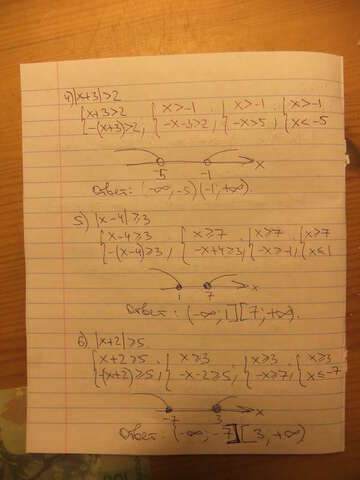 4) |x+3|>2
{x+3>2 -(x+3)>2; {x>-1 -x-3>2; {x>-1 -x>5; {x>-1 x<-5
-5 -1 x
Ответ: (-∞,-5)(-1,+∞).
5) |x-4|≥3
{x-4≥3 -(x-4)≥3; {x≥7 -x+4≥3; {x≥7 -x≥-1; {x≥7 x≤1
1 7 x
Ответ: (-∞; 1][7; +∞).
6) |x+2|≥5
{x+2≥5 -(x+2)≥5; {x≥3 -x-2≥5; {x≥3 -x≥7; {x≥3 x≤-7
-7 3 x
Ответ: (-∞; -7][3, +∞)